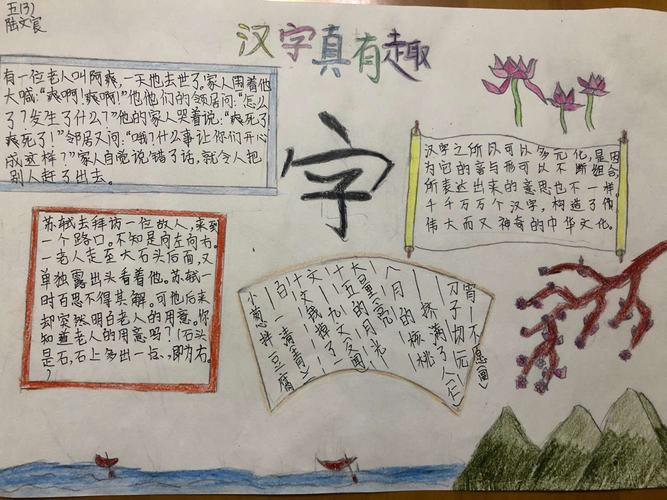 五(3)
汉字真有趣
有一位老人叫阿爽,一天他去世了。家人围着他
大喊:“爽啊!爽啊!”他他们的邻居问:“怎么
了?发生了什么?”他的家人哭着说:“爽死了爽
死了!”邻居又问:“哦?什么事让你们开心
成这样?”家人自觉说错了话,就令人把
别人赶了出去。
字
汉字之所以可以多元化,是因
为它的音与形可以不断组合,
所表达出来的意思也不一样。
千千万万个汉字,构造了伟
伟大而又神奇的中华文化。
苏轼去拜访一位故人,来到
一个路口。不知是向左向右。
一老人走至大石头后面,又
单独露出头看着他。苏轼一
时百思不得其解。可他后来
却突然明白老人的用意。你
知道老人的用意吗?(石头
是石,石上多出一点、,即为右。
)
宵—不愿(圆)
刀子切元
—挤满了人(仁)
八月的核桃
小葱拌豆腐